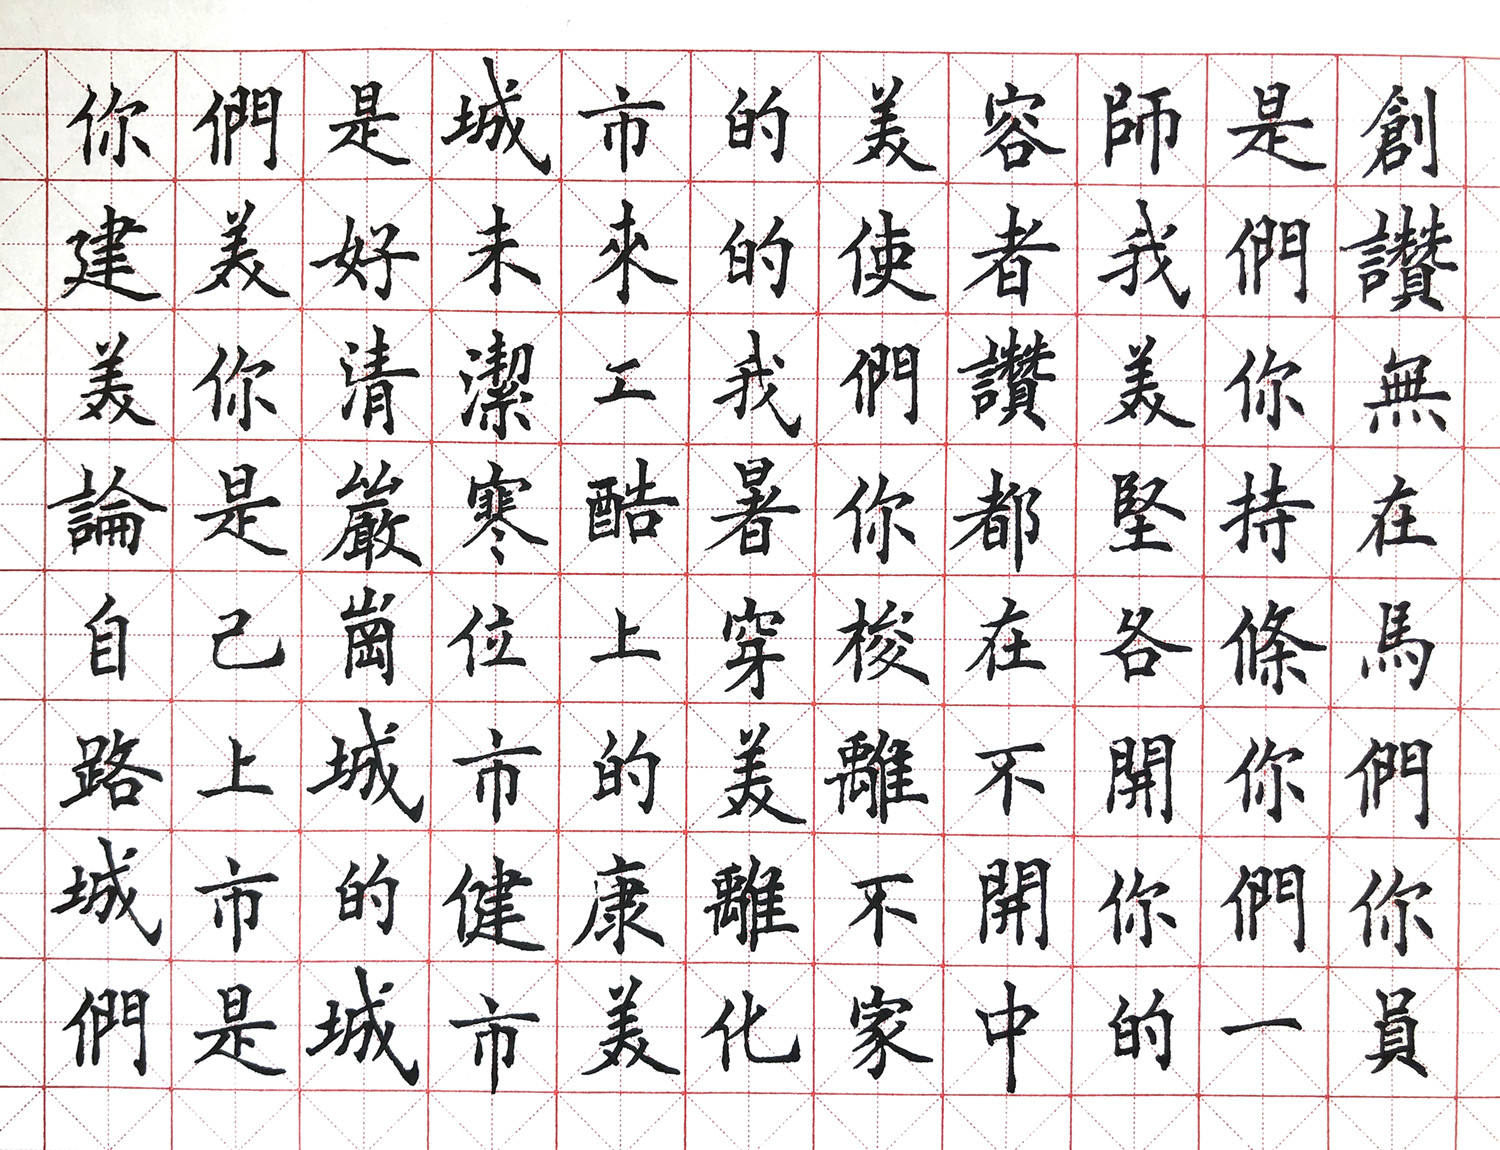 你們是城市的美容師是創
建美好未來的使者我們讚
美你清潔工我們讚美你無
論是嚴寒酷暑你都堅持在
自己崗位上穿梭在各條馬
路上城市的美離不開你們
城市的健康離不開你們你
們是城市美化家中的一員